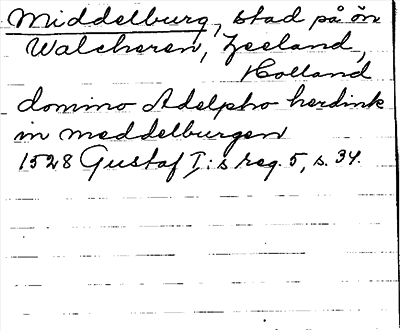 Middelburg, stad på ön
Walcheren, Zeeland,
Holland
domino Adelpho herdink
in meddelburgen
1528 Gustaf I:s reg. 5, s. 34.